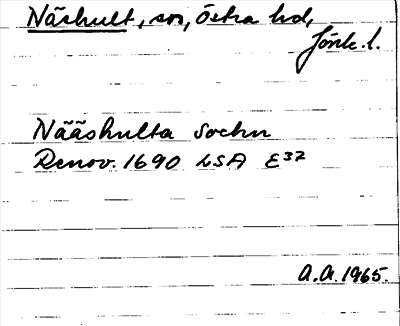 Näshult, sn, Östra hd,
Jönk. l.
Nääshulta Sochn
Renov. 1690 LSA E37
A.A. 1965